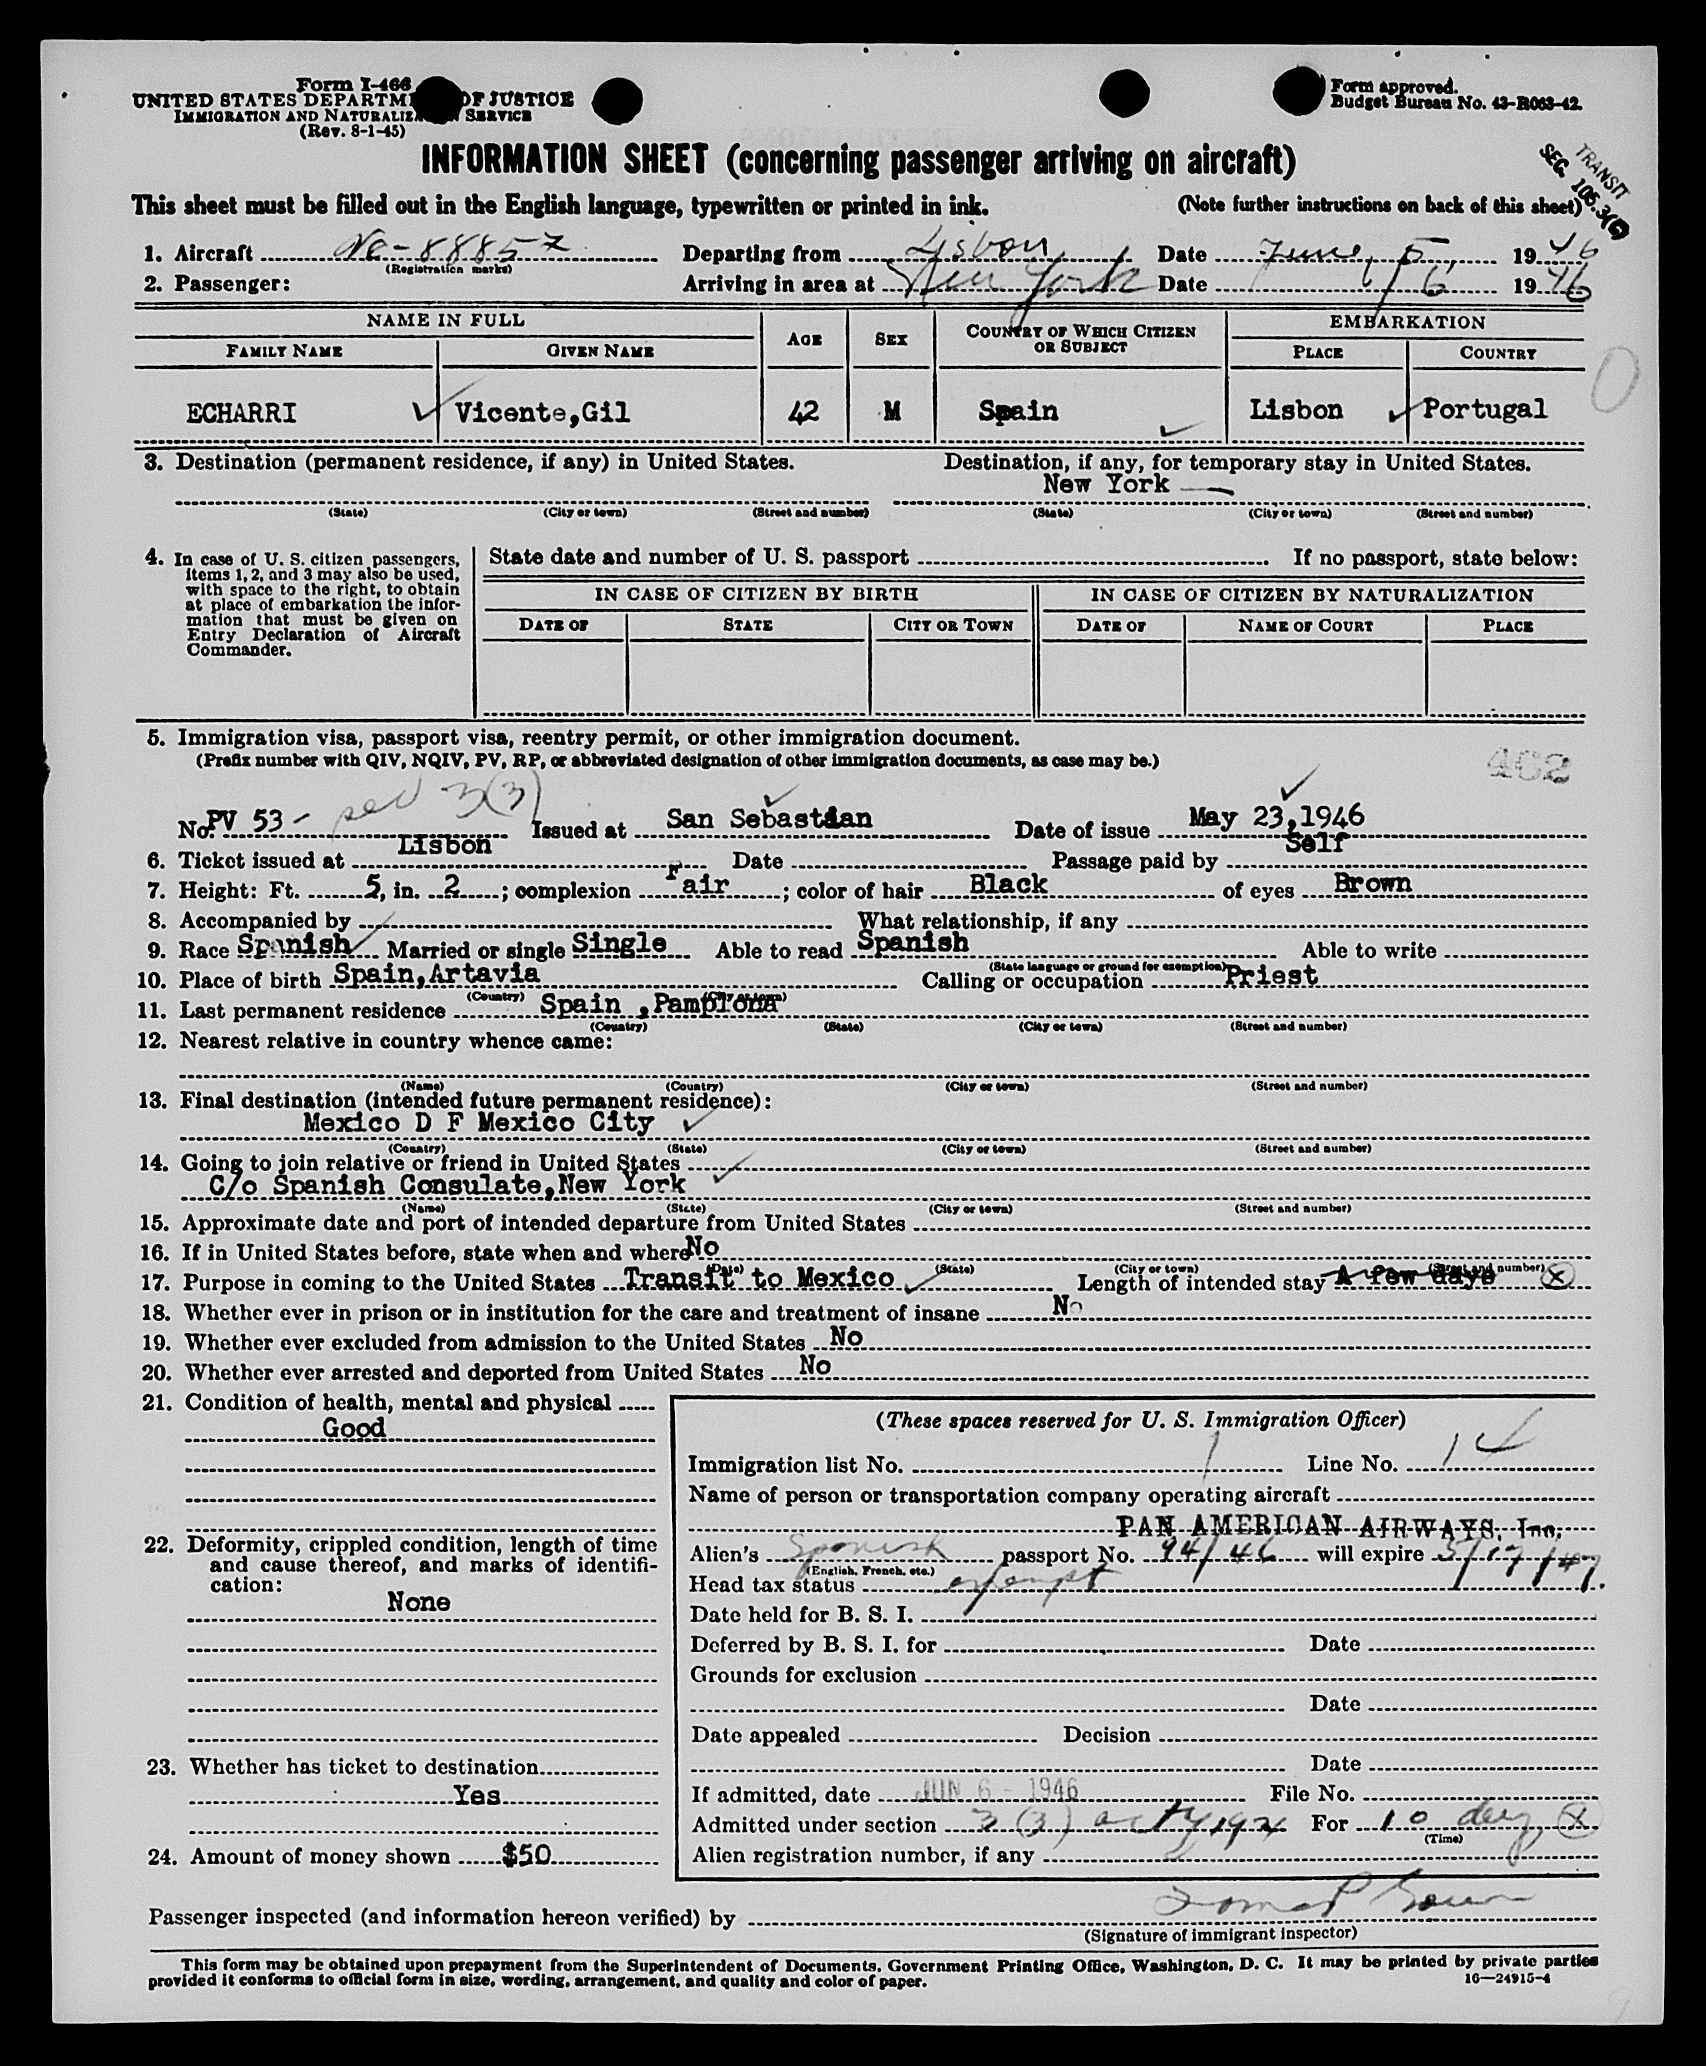 Form I-466
UNITED STATES DEPARTM OF JUSTICE
IMMIGRATION AND NATURALIZ N SERVICE
(Rev. 8-1-45)
Form approved.
Budget Bureau No. 43-R063-42.
TRANSIT
SEC. 106.3(6)
INFORMATION SHEET (concerning passenger arriving on aircraft)
This sheet must be filled out in the English language, typewritten or printed in ink. (Note further instructions on back of this sheet)
1. Aircraft Nc-88857 Departing from Lisbon Date June 5, 1946
(Registration marks)
2. Passenger: Arriving in area at New York Date 6 1946
NAME IN FULL AGE SEX COUNTRY OF WHICH CITIZEN OR SUBJECT EMBARKATION
FAMILY NAME GIVEN NAME PLACE COUNTRY
ECHARRI Vicente,Gil 42 M Spain Lisbon Portugal
0
3. Destination (permanent residence, if any) in United States. Destination, if any, for temporary stay in United States.
New York
(State) (City or town) (Street and number) (State) (City or town) (Street and number)
4. In case of U. S. citizen passengers, items 1, 2, and 3 may also be used, with space to the right, to obtain at place of embarkation the information that must be given on Entry Declaration of Aircraft Commander.
State date and number of U. S. passport If no passport, state below:
IN CASE OF CITIZEN BY BIRTH IN CASE OF CITIZEN BY NATURALIZATION
DATE OF STATE CITY OR TOWN DATE OF NAME OF COURT PLACE
5. Immigration visa, passport visa, reentry permit, or other immigration document.
(Prefix number with QIV, NQIV, PV, RP, or abbreviated designation of other immigration documents, as case may be.)
462
No. PV 53 - sec 3(3) Issued at San Sebastian Date of issue May 23,1946
6. Ticket issued at Lisbon Date Passage paid by Self
7. Height: Ft. 5, in. 2; complexion Fair; color of hair Black of eyes Brown
8. Accompanied by What relationship, if any
9. Race Spanish Married or single Single Able to read Spanish Able to write
(State language or ground for exemption)
10. Place of birth Spain,Artavia Calling or occupation Priest
(Country) (City or town)
11. Last permanent residence Spain ,Pamplona
(Country) (State) (City or town) (Street and number)
12. Nearest relative in country whence came:
(Name) (Country) (City or town) (Street and number)
13. Final destination (intended future permanent residence):
Mexico D F Mexico City
(Country) (State) (City or town) (Street and number)
14. Going to join relative or friend in United States
C/o Spanish Consulate,New York
(Name) (State) (City or town) (Street and number)
15. Approximate date and port of intended departure from United States
16. If in United States before, state when and where No
(Date) (State) (City or town) (Street and number)
17. Purpose in coming to the United States Transit to Mexico Length of intended stay A few days X
18. Whether ever in prison or in institution for the care and treatment of insane No
19. Whether ever excluded from admission to the United States No
20. Whether ever arrested and deported from United States No
21. Condition of health, mental and physical
Good
22. Deformity, crippled condition, length of time and cause thereof, and marks of identification:
None
23. Whether has ticket to destination
Yes
24. Amount of money shown $50
(These spaces reserved for U. S. Immigration Officer)
Immigration list No. 1 Line No. 14
Name of person or transportation company operating aircraft
PAN AMERICAN AIRWAYS, Inc.
Alien's Spanish passport No. 94/46 will expire 5/17/47.
(English, French, etc.)
Head tax status exempt
Date held for B. S. I.
Deferred by B. S. I. for Date
Grounds for exclusion
Date
Date appealed Decision
Date
If admitted, date JUN 6 - 1946 File No.
Admitted under section 3(3) act 1924 For 10 days X
(Time)
Alien registration number, if any
Passenger inspected (and information hereon verified) by
(Signature of immigrant inspector)
This form may be obtained upon prepayment from the Superintendent of Documents, Government Printing Office, Washington, D. C. It may be printed by private parties
provided it conforms to official form in size, wording, arrangement, and quality and color of paper.
16—24915-4